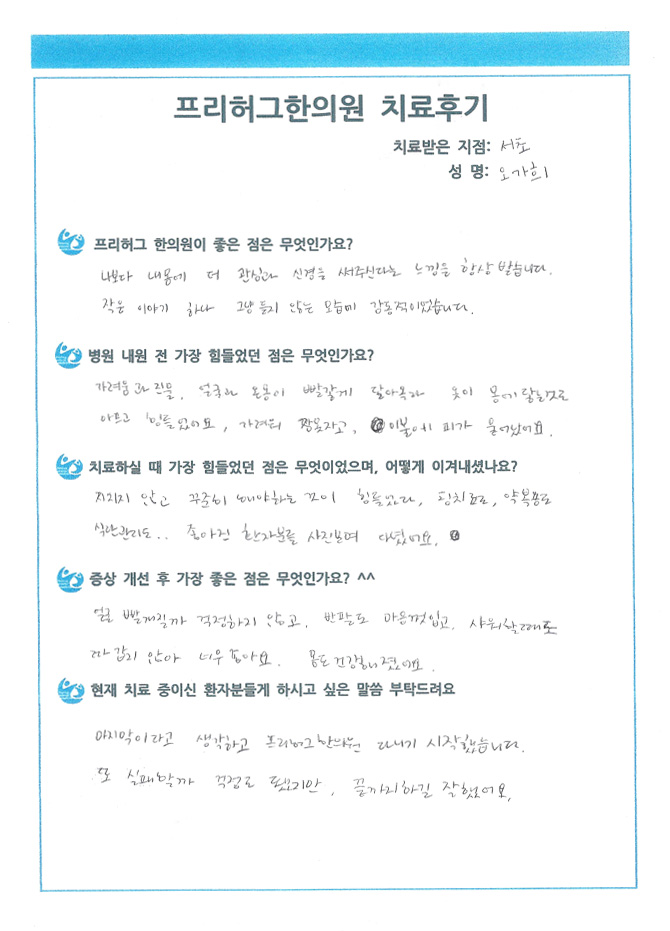 프리허그한의원 치료후기
치료받은 지점: 서초
성 명: 오가희
프리허그 한의원이 좋은 점은 무엇인가요?
나보다 내몸에 더 관심과 신경을 써주신다는 느낌을 항상 받습니다.
작은 이야기 하나 그냥 듣지 않는 모습에 감동적이었습니다.
병원 내원 전 가장 힘들었던 점은 무엇인가요?
가려움과 진물. 얼굴과 온몸이 빨갛게 달아옥라 옷이 몸에 닿는것도
아프고 힘들었어요, 가려워 잠못자고, 이불에 피가 묻어났어요.
치료하실 때 가장 힘들었던 점은 무엇이었으며, 어떻게 이겨내셨나요?
지치지 않고 꾸준히 해야하는 것이 힘들었다, 침치료, 약복용도
식단관리도.. 좋아진 환자분들 사진보며 다녔어요.
증상 개선 후 가장 좋은 점은 무엇인가요? ^^
얼굴 빨개질까 걱정하지 않고, 반팔도 마음껏입고. 샤워할때도
따갑지 않아 너무 좋아요. 몸도 건강해졌어요.
현재 치료 중이신 환자분들게 하시고 싶은 말씀 부탁드려요
마지막이라고 생각하고 프리허그한의원 다니기 시작했습니다.
또 실패할까 걱정도 했지만, 끝까지하길 잘했어요.